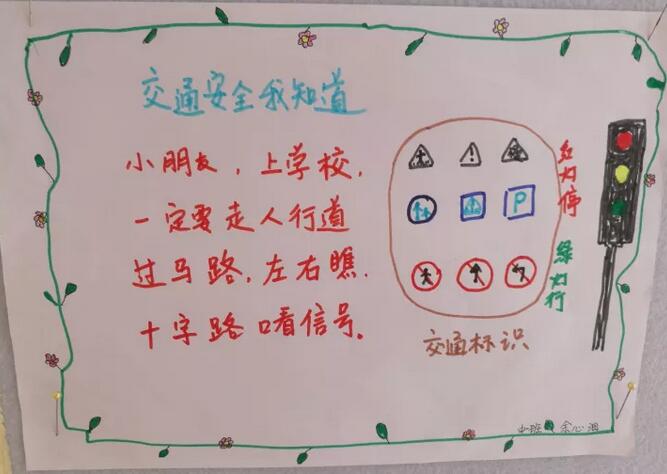 交通安全我知道
小朋友，上学校，
一定要走人行道
过马路，左右瞧．
十字路口看信号．
P
红灯停
绿灯行
交通标识
中班 余心